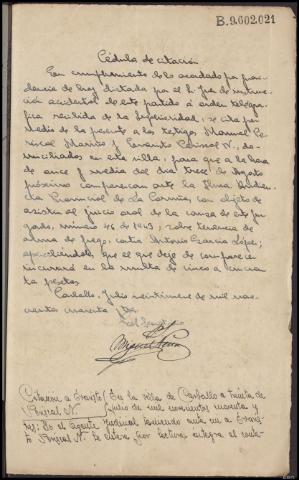 B.9602.021
Cédula de citación
En cumplimiento de lo acordado por providencia
de hoy dictada por el Sr. Juez de instrucción
accidental de este partido a orden telegráfica
recibida de la Superioridad, se cita por
medio de la presente a los testigos, Manuel
Mariño y Evaristo N.,
domiciliados en esta villa, para que a la hora
de once y media del día trece de Agosto
próximo comparezcan ante la Ilma. Audiencia
Provincial de La Coruña, con objeto de
asistir al juicio oral de la causa de este Juzgado,
número 46 de 1943, sobre tenencia de
arma de fuego, contra Antonio García López;
apercibiéndoles que el que deje de comparecer
incurrirá en la multa de cinco a cincuenta
pesetas.
Carballo, Julio veintinueve de mil novecientos
cuarenta y
El
Citación a Evaristo
N.
En la villa de Carballo a treinta de
julio de mil novecientos cuarenta y
Yo el agente judicial teniendo ante mi a Evaristo
N. le enteré por lectura íntegra el